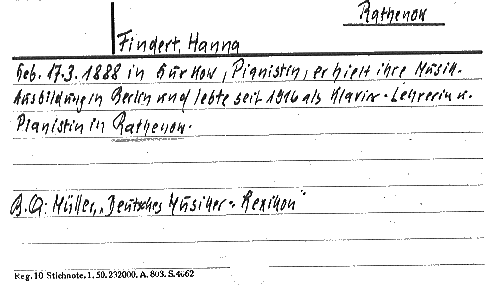 Rathenow
Findert, Hanna
Geb. 17.3. 1888 in Gurkow, Pianistin, erhielt ihre Musik-
Ausbildung in Berlin und lebte seit 1916 als Klavier-Lehrerin u.
Pianistin in Rathenow.
B.Q: Müller, „Deutsches Musiker-Lexikon"
Reg. 10 Stichnote. 1. 50. 232000. A. 803. S. 4662